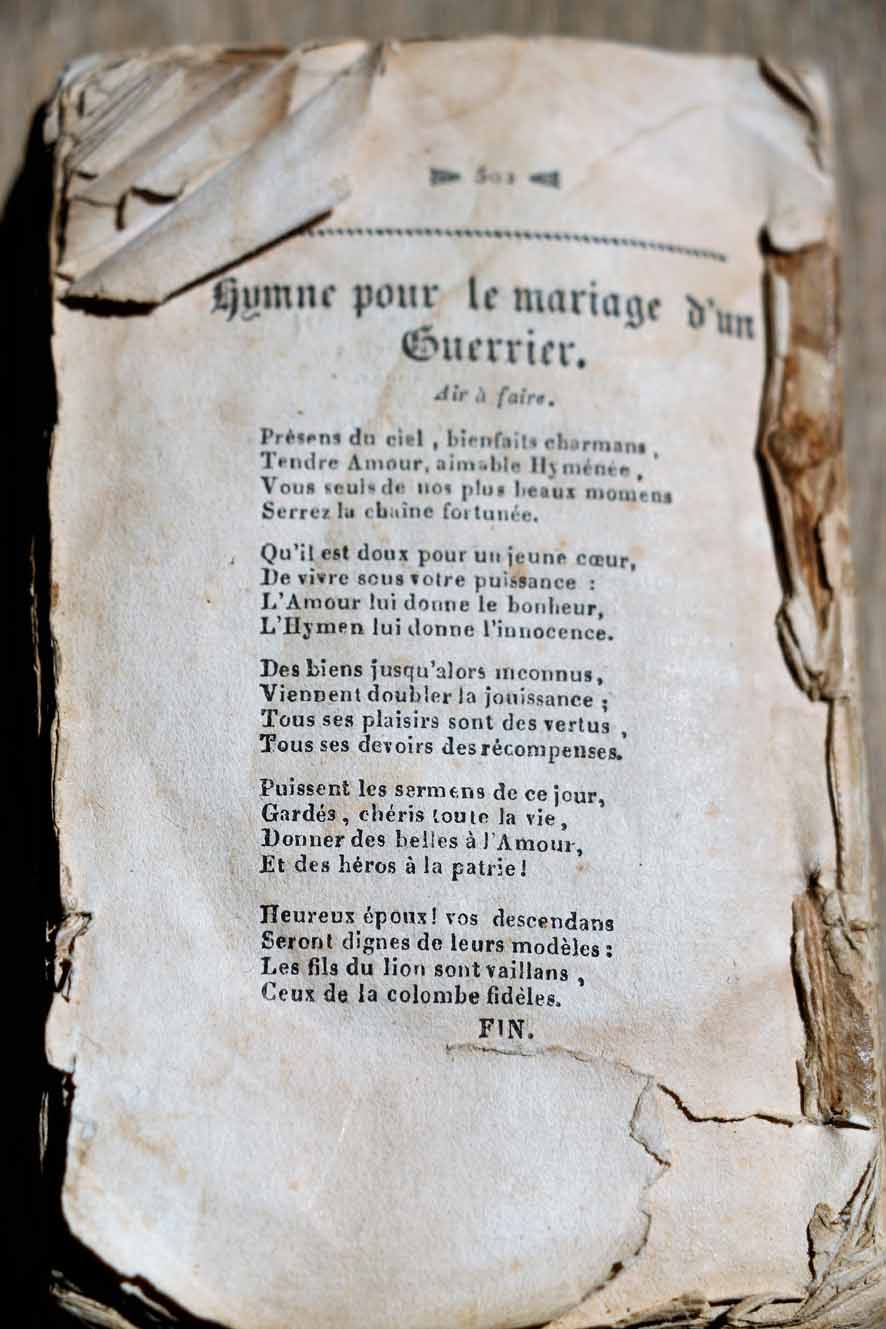 501
Hymne pour le mariage d'un
Guerrier.
Air à faire.
Présens du ciel, bienfaits charmans,
Tendre Amour, aimable Hyménée,
Vous seuls de nos plus beaux momens
Serrez la chaîne fortunée.
Qu'il est doux pour un jeune cœur,
De vivre sous votre puissance :
L'Amour lui donne le bonheur,
L'Hymen lui donne l'innocence.
Des biens jusqu'alors inconnus,
Viennent doubler la jouissance ;
Tous ses plaisirs sont des vertus,
Tous ses devoirs des récompenses.
Puissent les sermens de ce jour,
Gardés, chéris toute la vie,
Donner des belles à l'Amour,
Et des héros à la patrie !
Heureux époux ! vos descendans
Seront dignes de leurs modèles :
Les fils du lion sont vaillans,
Ceux de la colombe fidèles.
FIN.